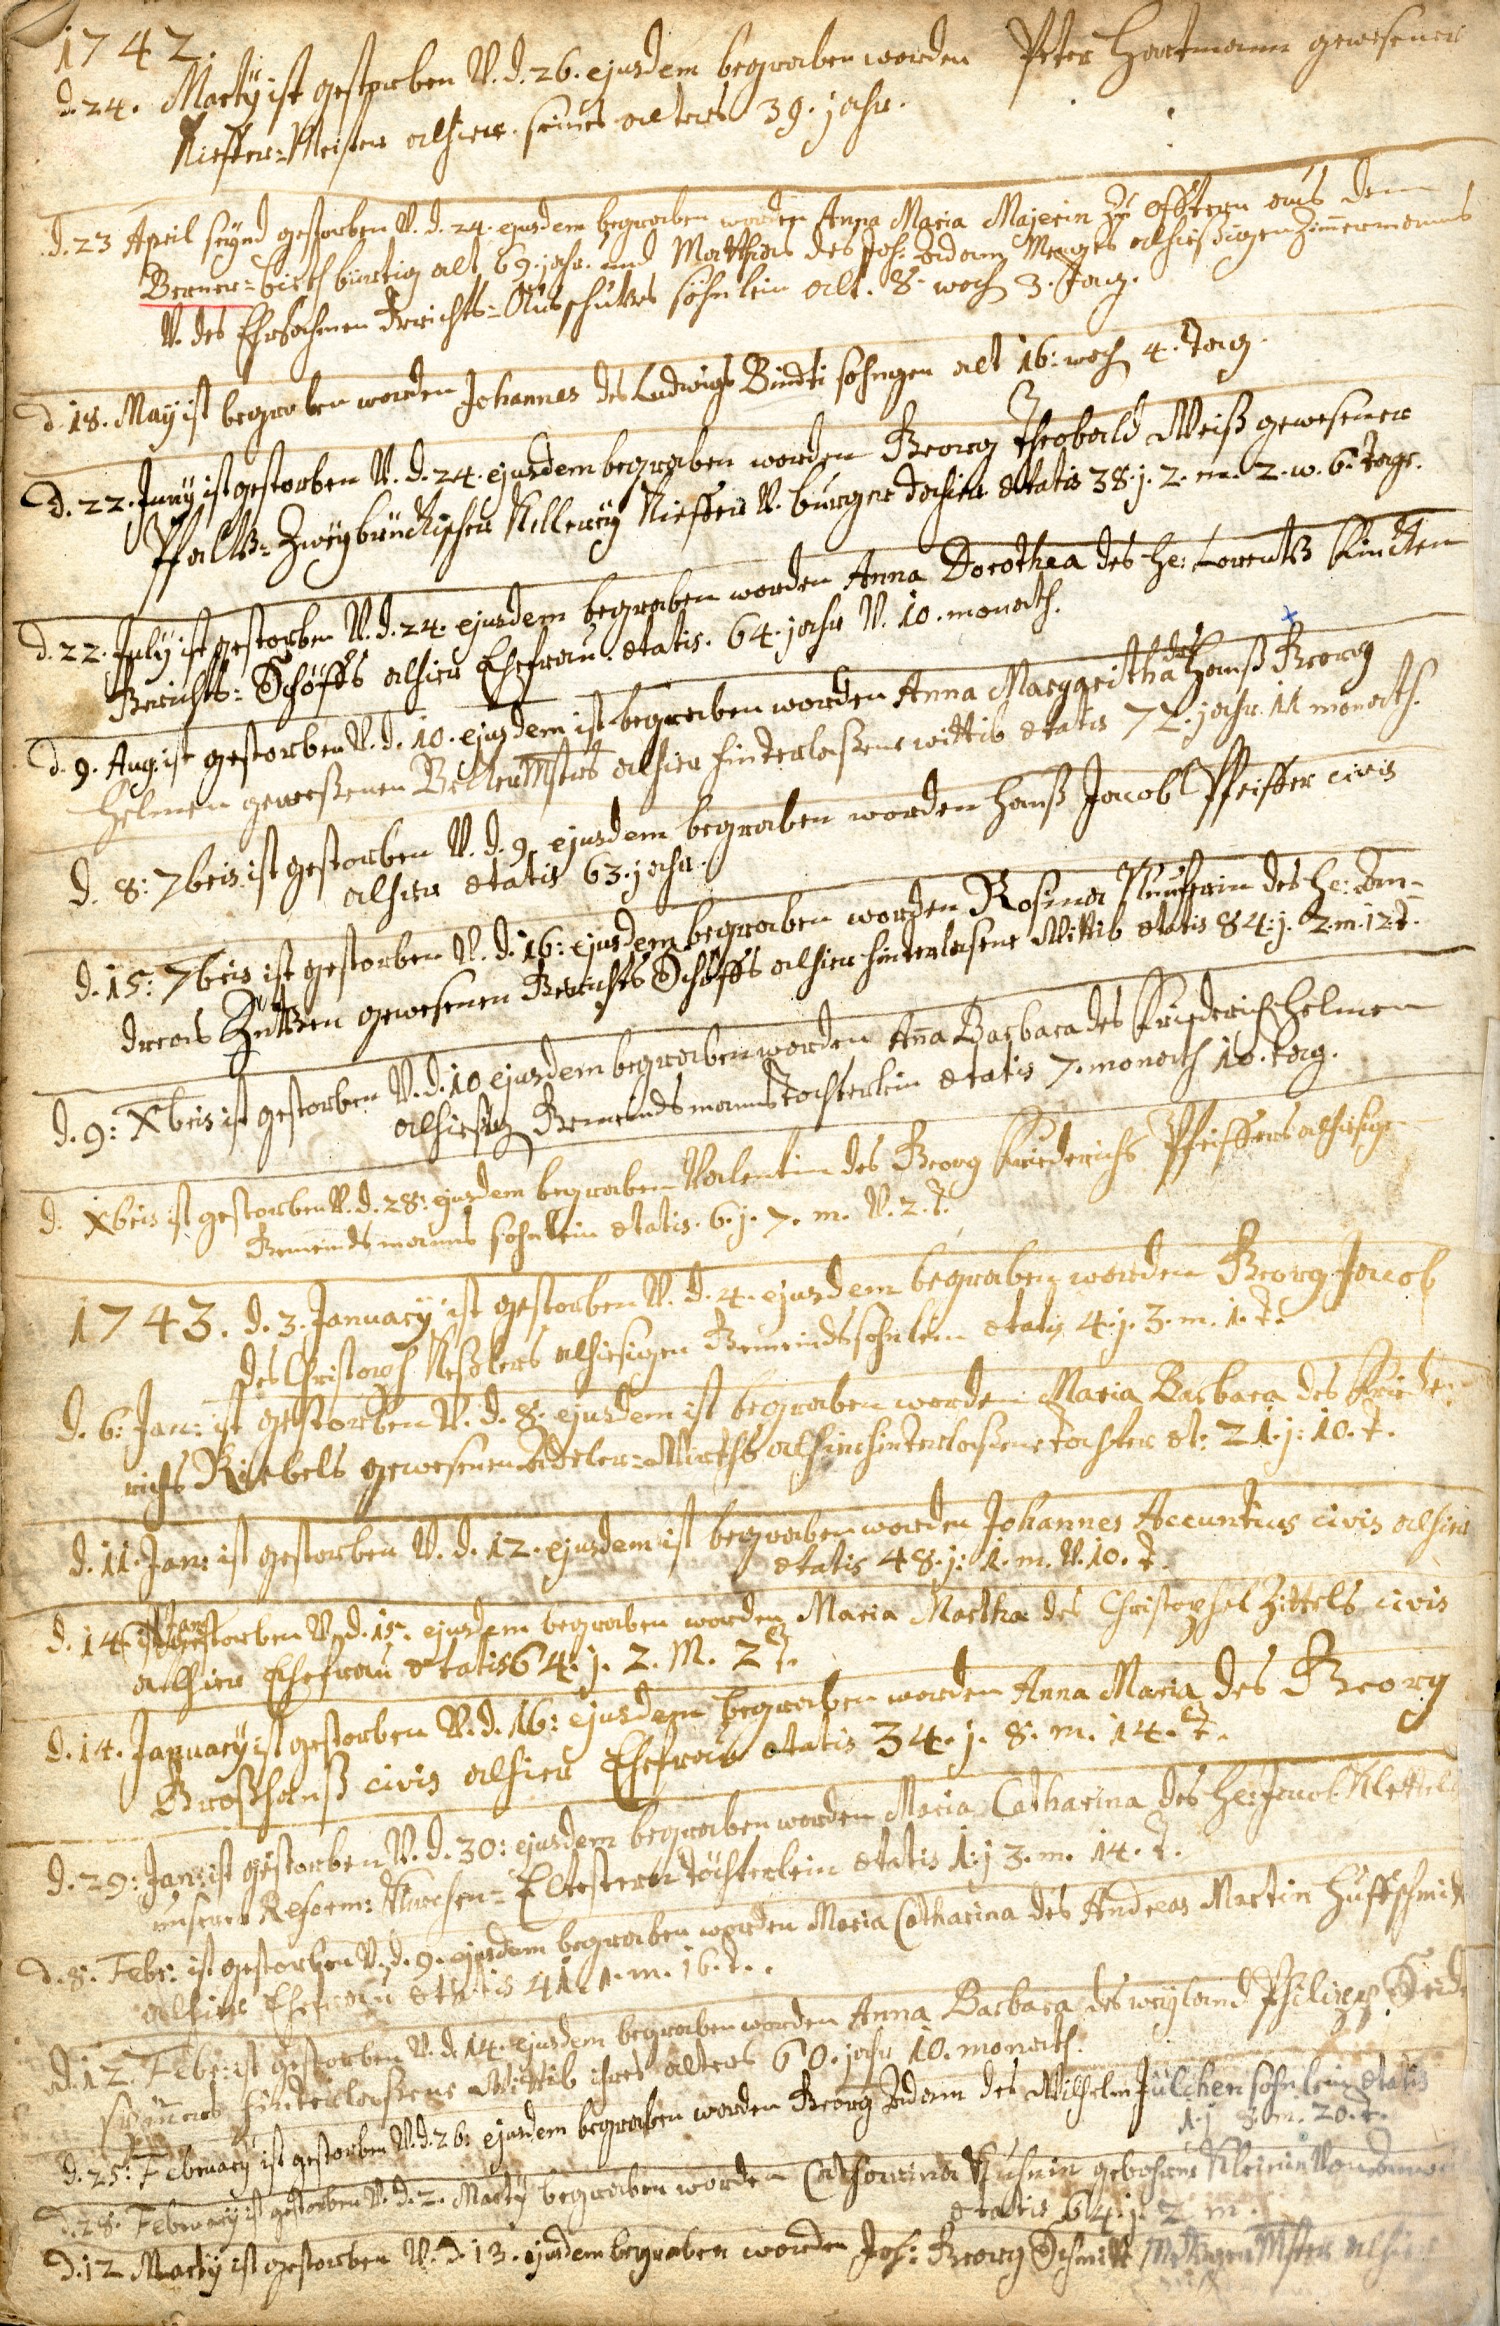 1742.
d. 24. Martÿ ist gestorben V. d. 26. ejusdem begraben worden Peter Hartmann gewesener
Kieffer=Meister alhier. seines alters 39. jahr.
d. 23 April seÿnd gestorben V. d. 24. ejusdem begraben worden Anna Maria Majerin zu offtern aus dem
Berner=bieth bürtig alt 69. jahr. und Matthias des Joh: Adam Menges alhießigen Zimmermanns
V. des Ehrsahmen Gerichts=Ausschusses söhnlein alt. 8. woch 3. tag.
d. 18. Maÿ ist begraben worden Johannes des Ludwigs söhngen alt 16: woch 4. tag.
d. 22. Junÿ ist gestorben V. d. 24. ejusdem begraben worden Georg Theobald Weiß gewesener
Pfaltz=Zweÿbrückischer Kellereÿ Kieffer V. burger dahier ætatis 38. j. 2. m. 2. w. 6. tage.
d. 22. Julÿ ist gestorben V. d. 24. ejusdem begraben worden Anna Dorothea des he: Lorentz
Gerichts=Schöffs alhier Ehefrau. ætatis. 64. jahr V. 10. monath.
d. 9. Aug: ist gestorben V. d. 10. ejusdem ist begraben worden Anna Margaritha des Hanß Georg
Helmen geweßenen alhier hinterlaßene wittib ætatis 72. jahr. 11 monath.
d. 8: 7bris ist gestorben V. d. 9. ejusdem begraben worden Hanß Jacob Pfeiffer civis
alhier ætatis 63. jahr.
d. 15: 7bris ist gestorben V. d. 16: ejusdem begraben worden Rosina des he: An=
dreas gewesenen Gerichts Schöffs alhier hinterlasene Wittib ætatis 84. j. 2. m. 12 t.
d. 9: Xbris ist gestorben V. d. 10 ejusdem begraben worden Aña Barbara des Friderich Helmen
alhießig Gemeindsmanns tochterlein ætatis 7. monath 10. tag.
d. Xbris ist gestorben V. d. 28: ejusdem begraben Valentin des Georg Friederichs Pfeiffers alhießige
Gemeindsmanns söhnlein ætatis. 6. j. 7. m. V. 2. t.
1743. d. 3. Januarÿ ist gestorben V. d. 4. ejusdem begraben worden Georg Jacob
des Christoph Keßlers alhiesigen Gemeinds söhnlein ætatis 4. j. 3. m. 1. t.
d. 6: Jan: ist gestorben V. d. 8. ejusdem ist begraben worden Maria Barbara des Friede=
richs gewesenen Adeler=Wirths alhier hinterlaßene tochter æt: 21. j: 10. t.
d. 11. Jan: ist gestorben V. d. 12. ejusdem ist begraben worden Johannes Accuntius civis alhier
ætatis 48. j: 1. m. V. 10. t.
d. 14. Jan: ist gestorben V. d. 15. ejusdem begraben worden Maria Martha des Christophel Zittels civis
alhier Ehefrau ætatis 64. j. 2. M. 2 t.
d. 14. Januarÿ ist gestorben V. d. 16: ejusdem begraben worden Anna Maria des Georg
Großhanß civis alhier Ehefrau ætatis 34. j. 8. m. 14. t.
d. 29: Jan: ist gestorben V. d. 30: ejusdem begraben worden Maria Catharina des he: Jacob
unserer Reform: Kirchen=Eltesterer töchterlein ætatis 1: j 3. m. 14. t.
d. 8. Febr: ist gestorben V. d. 9. ejusdem begraben worden Maria Catharina des Andreas Martin Huffschmidt
alhier Ehefrau ætatis 41. 1. m. 16. t.
d. 12. Febr: ist gestorben V. d. 14. ejusdem begraben worden Anna Barbara des weÿland Philipp
hinterlaßene Wittib ihres alters 60. jahr 10. monath.
d. 25: Februarÿ ist gestorben V. d. 26: ejusdem begraben worden Georg Adam des Wilhelm Jülchen söhnlein ætatis
1. j 8. m. 20. t.
d. 28. Februarÿ ist gestorben V. d. 2. Martÿ begraben worden Catharina Kuhnin gebohrne
ætatis 64. j. 2 m.
d. 12 Martÿ ist gestorben V. d. 13. ejusdem begraben worden Joh: Georg Schmitt Metzger Mster alhier